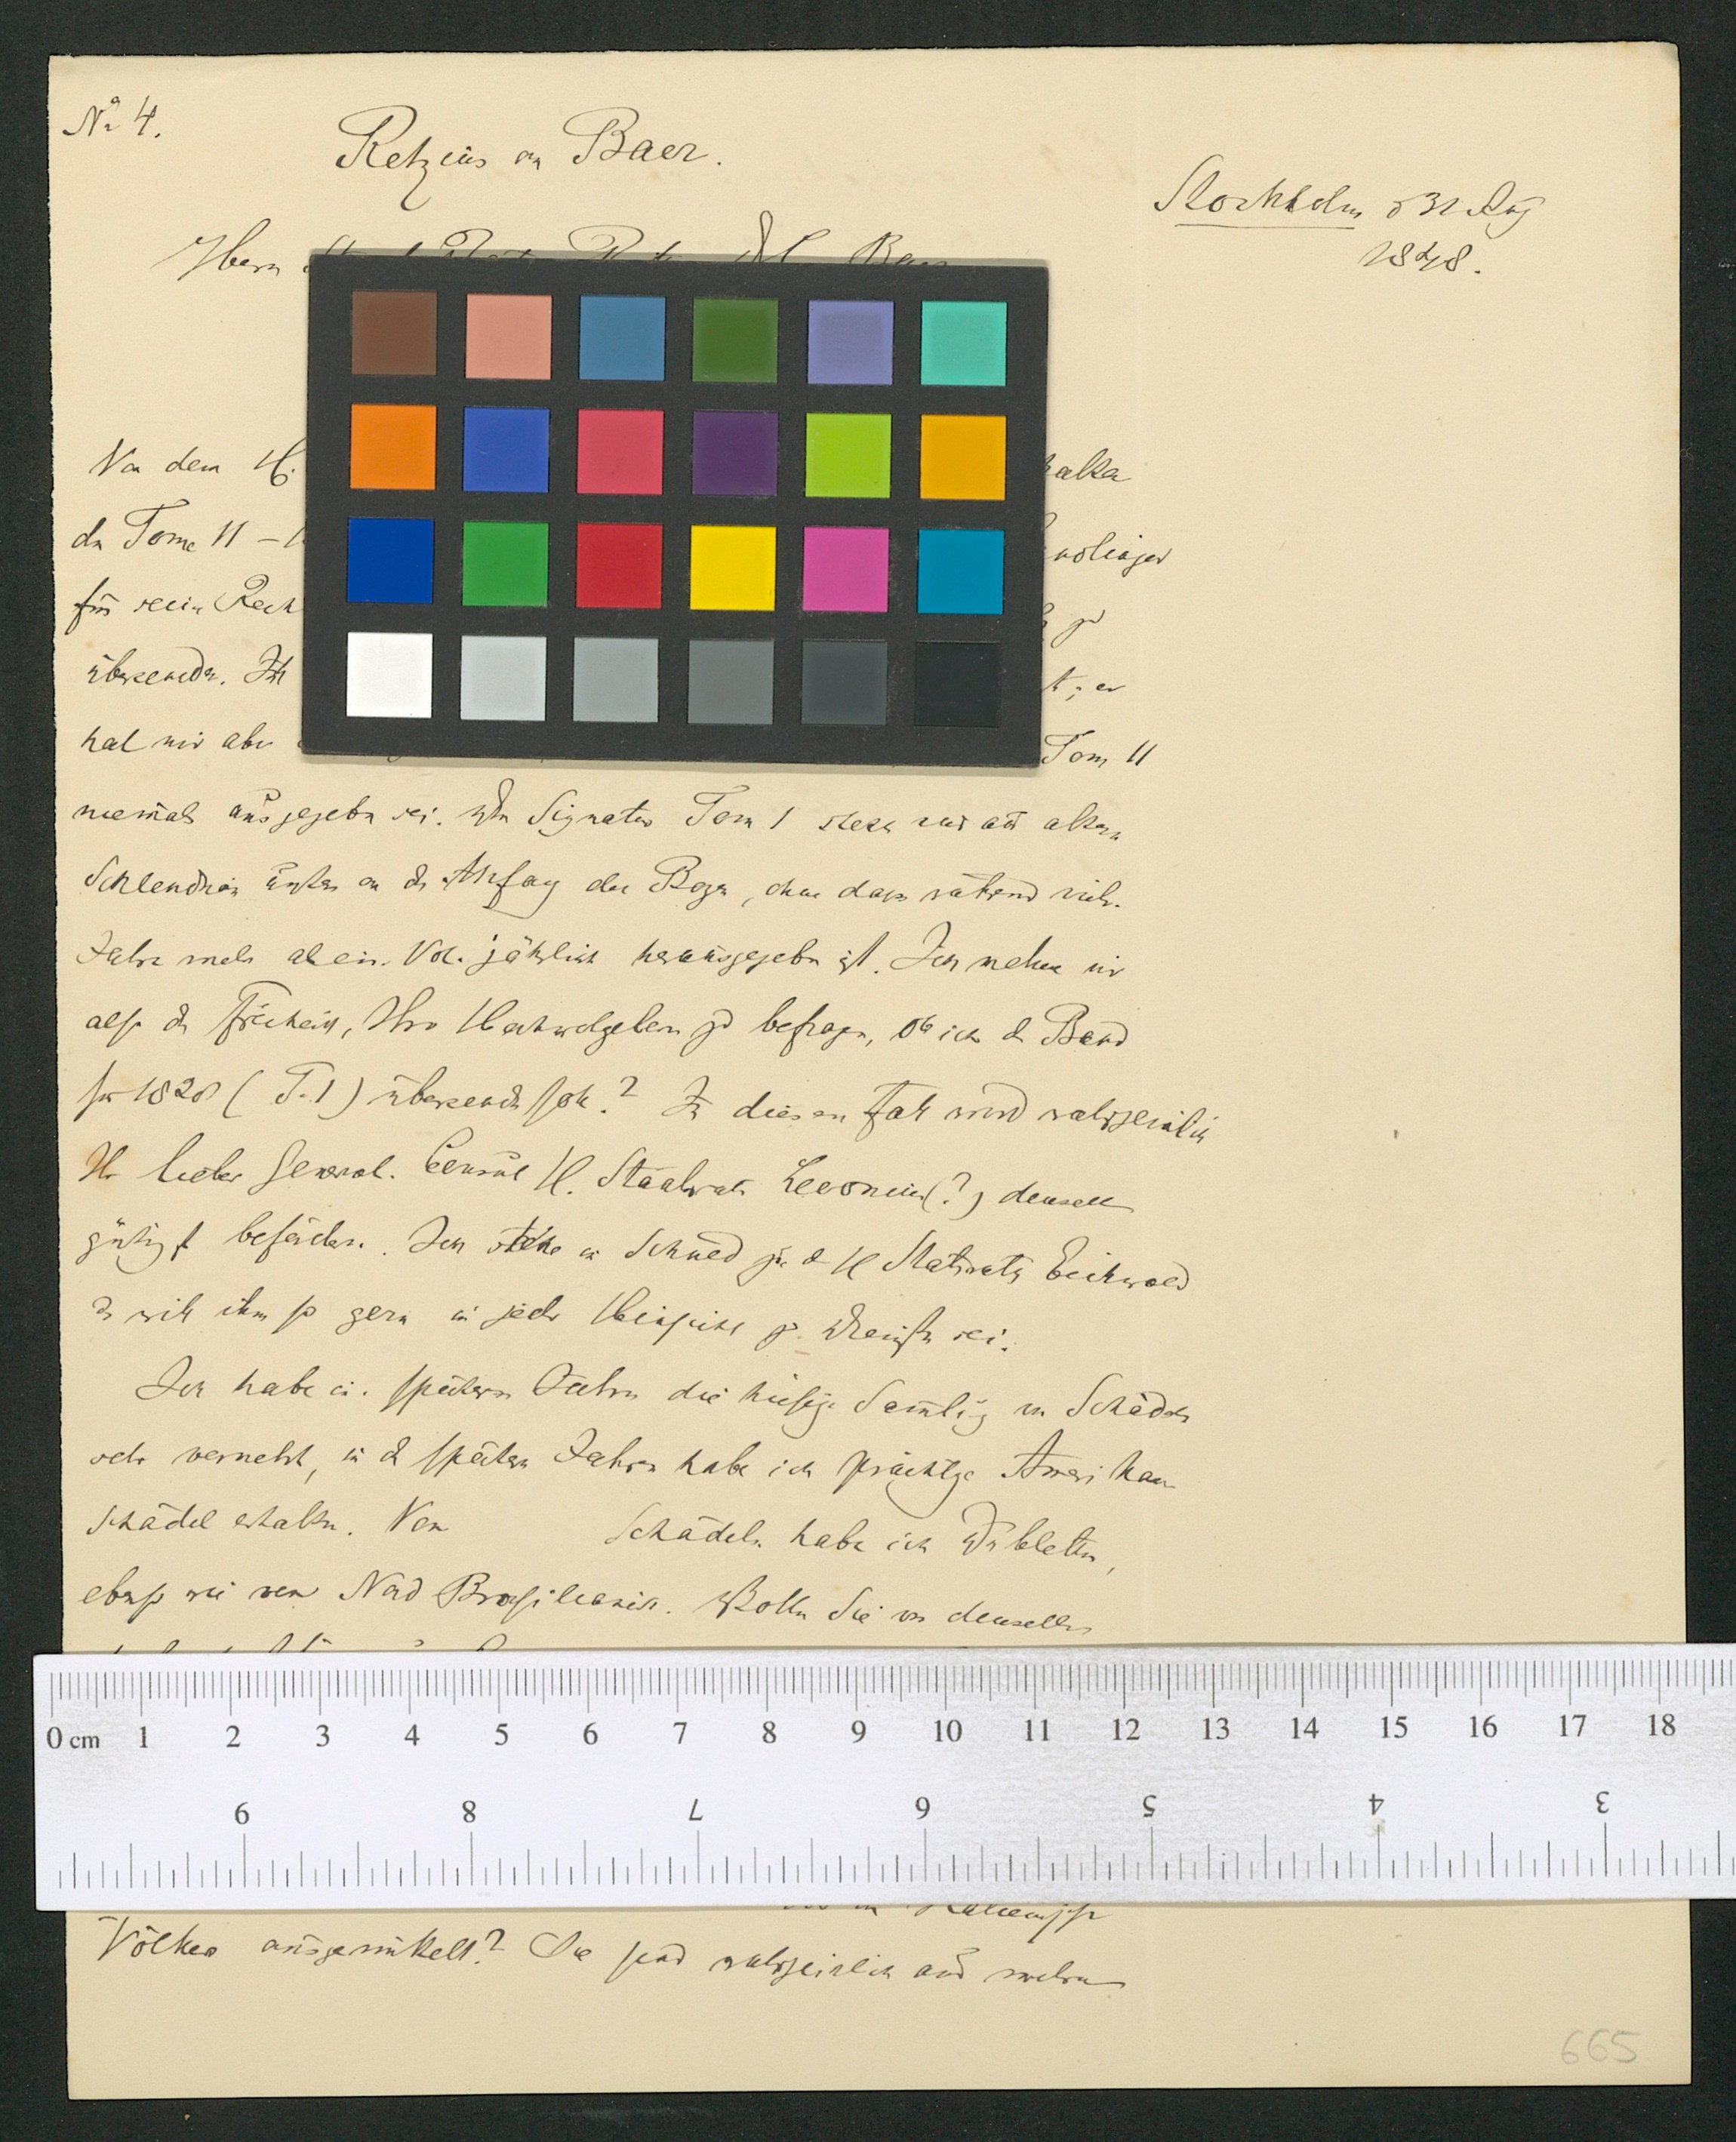 No 4.
Retzius an Baer.
Stockholm d 31 Aug
1848.
Herrn
Von dem H.
den Tome II –
für sein
übersenden. Ich
hat mir aber Tom II
niemals ausgegeben sei. Die Signatur Tom I steht nur aus altem
Schlendrian unten an dem Anfang der Bogen, ohne dass während viel.
Jahre mehr als ein. Vol. jährlich herausgegeben ist. Ich nehme mir
also die Freiheit, Ihro Hochwolgeboren zu befragen, ob ich d Band
für 1828 (T. I) übersenden soll? In diesem Fall wird wahrscheinlich
Ihr lieber General. Consul H. Staatsrath (?) denselben
gütigst befördern. Ich stehe in Schuld zu d H Staatsrath Eichwald
u will ihm so gern in jeder Hinsicht zu Dienste sei.
Ich habe in. spätern Jahren die hiesige Samlug von Schädeln
sehr vermehrt, in d spätern Jahren habe ich prächtige Amerikan
Schädel erhalten. Von Schädeln habe ich Dubletten,
ebenso wie von Nord Brasilianisch. Wollen Sie von denselben
Völker ausgemittelt? Sie sind wahrscheinlich aus mehren
665
0 cm 1 2 3 4 5 6 7 8 9 10 11 12 13 14 15 16 17 18
9 8 7 6 5 4 3